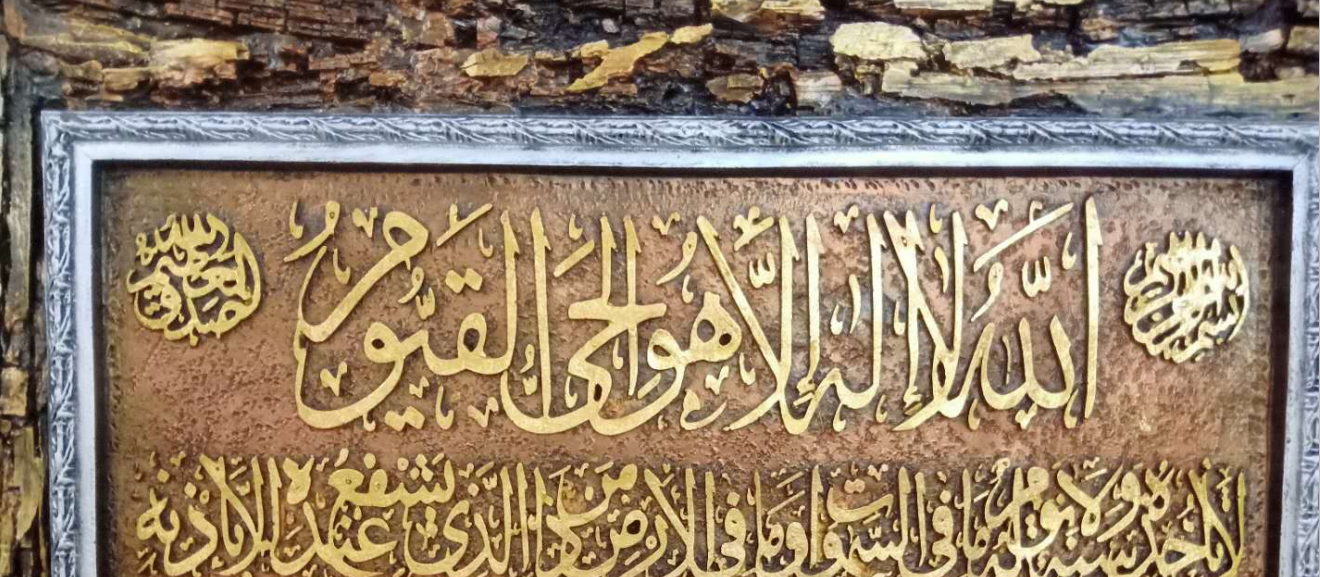 بسم الله الرحمن الرحيم
اللّٰهُ لَا إِلٰهَ إِلَّا هُوَ الْحَىُّ الْقَيُّومُ
صدق الله العلي العظيم
لا تأخذه سنة ولا نوم له ما في السموات وما في الارض من ذا الذي يشفع عنده الا باذنه